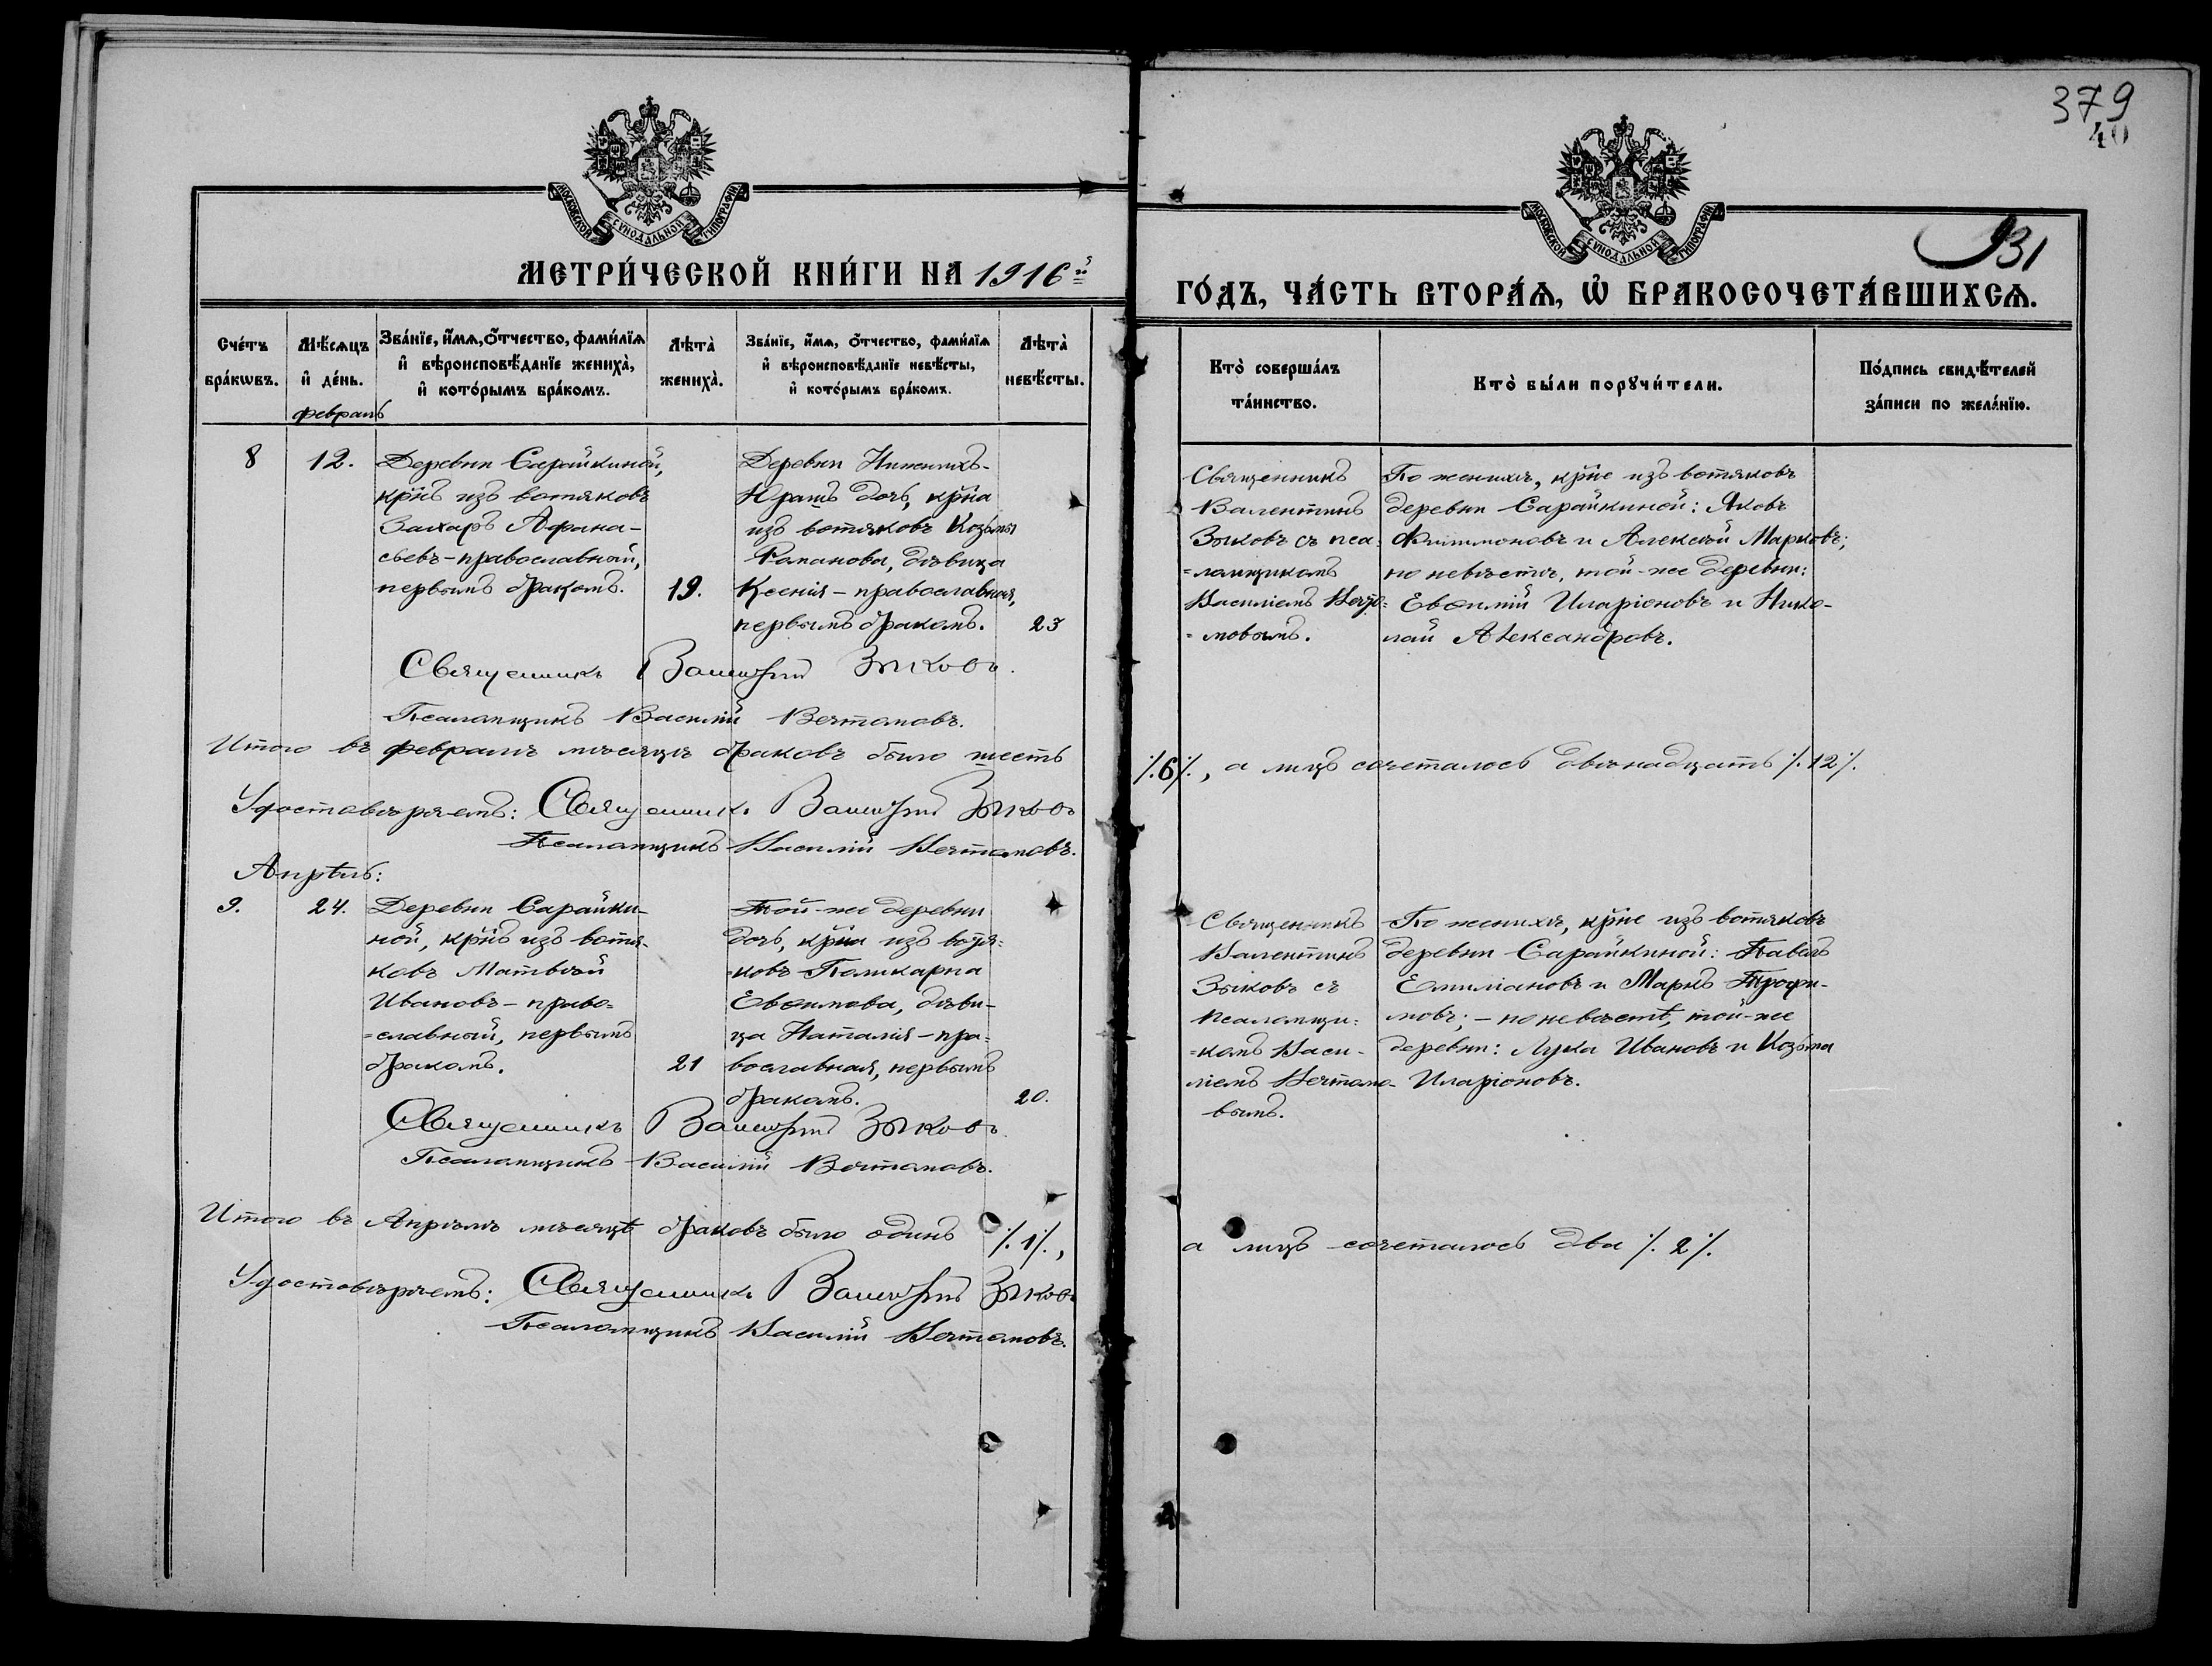 379
40
931
МОСКОВСКОЙ СѴНОДАЛЬНОЙ ТИПОГРАФІИ
МОСКОВСКОЙ СѴНОДАЛЬНОЙ ТИПОГРАФІИ
МЕТРИ́ЧЕСКОЙ КНИ́ГИ НА 1916й
ГО́ДЪ, ЧА́СТЬ ВТОРА́Ѧ, Ѡ БРАКОСОЧЕТА́ВШИХСѦ.
Сче́тъ бра́кѡвъ.
Мѣ́сѧцъ и҆ де́нь.
Зва́нїе, и҆́мѧ, ѻ҆́тчество, фами́лїѧ и҆ вѣроисповѣ́данїе жениха̀, и҆ кото́рымъ бра́комъ.
Лѣта̀ жениха̀.
Зва́нїе, и҆́мѧ, ѻ҆́тчество, фами́лїѧ и҆ вѣроисповѣ́данїе невѣ́сты, и҆ кото́рымъ бра́комъ.
Лѣта̀ невѣ́сты.
Кто̀ соверша́лъ та́инство.
Кто̀ бы́ли порꙋчи́тели.
По́дпись свидѣ́телей за́писи по жела́нїю.
февраль
8
12.
Деревни Сарайкиной,
кр̃нъ изъ вотяковъ
Захаръ Афана-
сьевъ - православный,
первымъ бракомъ.
19.
Деревни Нижнихъ-
Юрашъ дочь, кр̃на
изъ вотяковъ Козьмы
Романова, дѣвица
Ксенія - православная,
первымъ бракомъ.
23
Священникъ
Валентинъ
Зыковъ съ пса-
=ломщикомъ
Василіемъ
=мовымъ.
По женихѣ, кр̃не изъ вотяковъ
деревни Сарайкиной: Яковъ
Филимоновъ и Алексѣй Марковъ;
по невѣстѣ, той-же деревни:
Евѳимій Иларіоновъ и Нико-
лай Александровъ.
Священникъ Валентинъ Зыковъ.
Псаломщикъ Василій Вечтомовъ.
Итого въ февралѣ мѣсяцѣ браковъ было шесть
/.6./, а лицъ сочеталось двѣнадцать /.12./.
Удостовѣряемъ: Священникъ Валентинъ Зыковъ
Псаломщикъ Василій Вечтомовъ.
Апрѣль:
9.
24.
Деревни Сарайки-
ной, кр̃нъ изъ вотя-
ковъ Матвѣй
Ивановъ - право=
=славный, первымъ
бракомъ.
21
Той-же деревни
дочь, кр̃на изъ вотя=
=ковъ Поликарпа
Евѳимова, дѣви-
ца Наталія - пра=
вославная, первымъ
бракомъ.
20.
Священникъ
Валентинъ
Зыковъ съ
псаломщи=
=комъ Васи-
ліемъ Вечтомо-
вымъ.
По женихѣ, кр̃не изъ вотяковъ
деревни Сарайкиной: Павелъ
Емиліановъ и Маркъ Трофи-
мовъ; - по невѣстѣ, той-же
деревни: Лука Ивановъ и Козьма
Иларіоновъ.
Священникъ Валентинъ Зыковъ
Псаломщикъ Василій Вечтомовъ.
Итого въ Апрѣлѣ мѣсяцѣ браковъ было одинъ /.1./,
а лицъ сочеталось два /.2./.
Удостовѣряемъ: Священникъ Валентинъ Зыковъ
Псаломщикъ Василій Вечтомовъ.